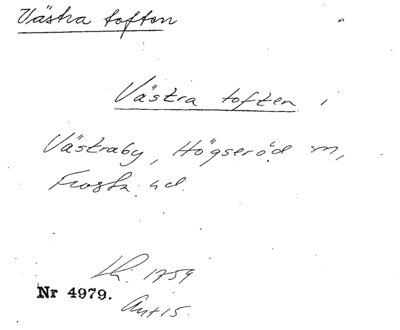 Västra toften
Västra toften i
Västraby, Högseröd sn,
Frosta hd.
Lh. 1759
Nr 4979.
Akt 15.